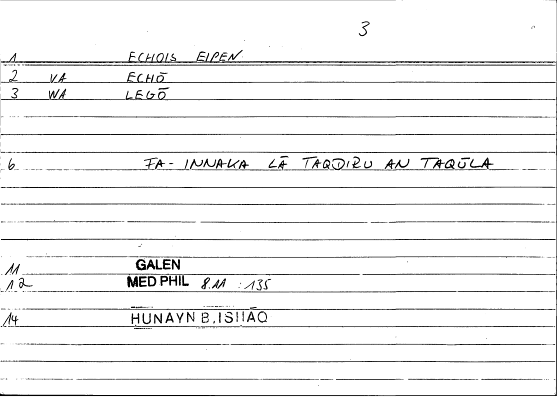 3
1 ECHOIS EIPEN
2 VA ECHŌ
3 WA LEGŌ
6 FA-INNAKA LĀ TAQDIRU AN TAQŪLA
11 GALEN
12 MED PHIL 8.11 :135
14 HUNAYN B. ISḤĀQ